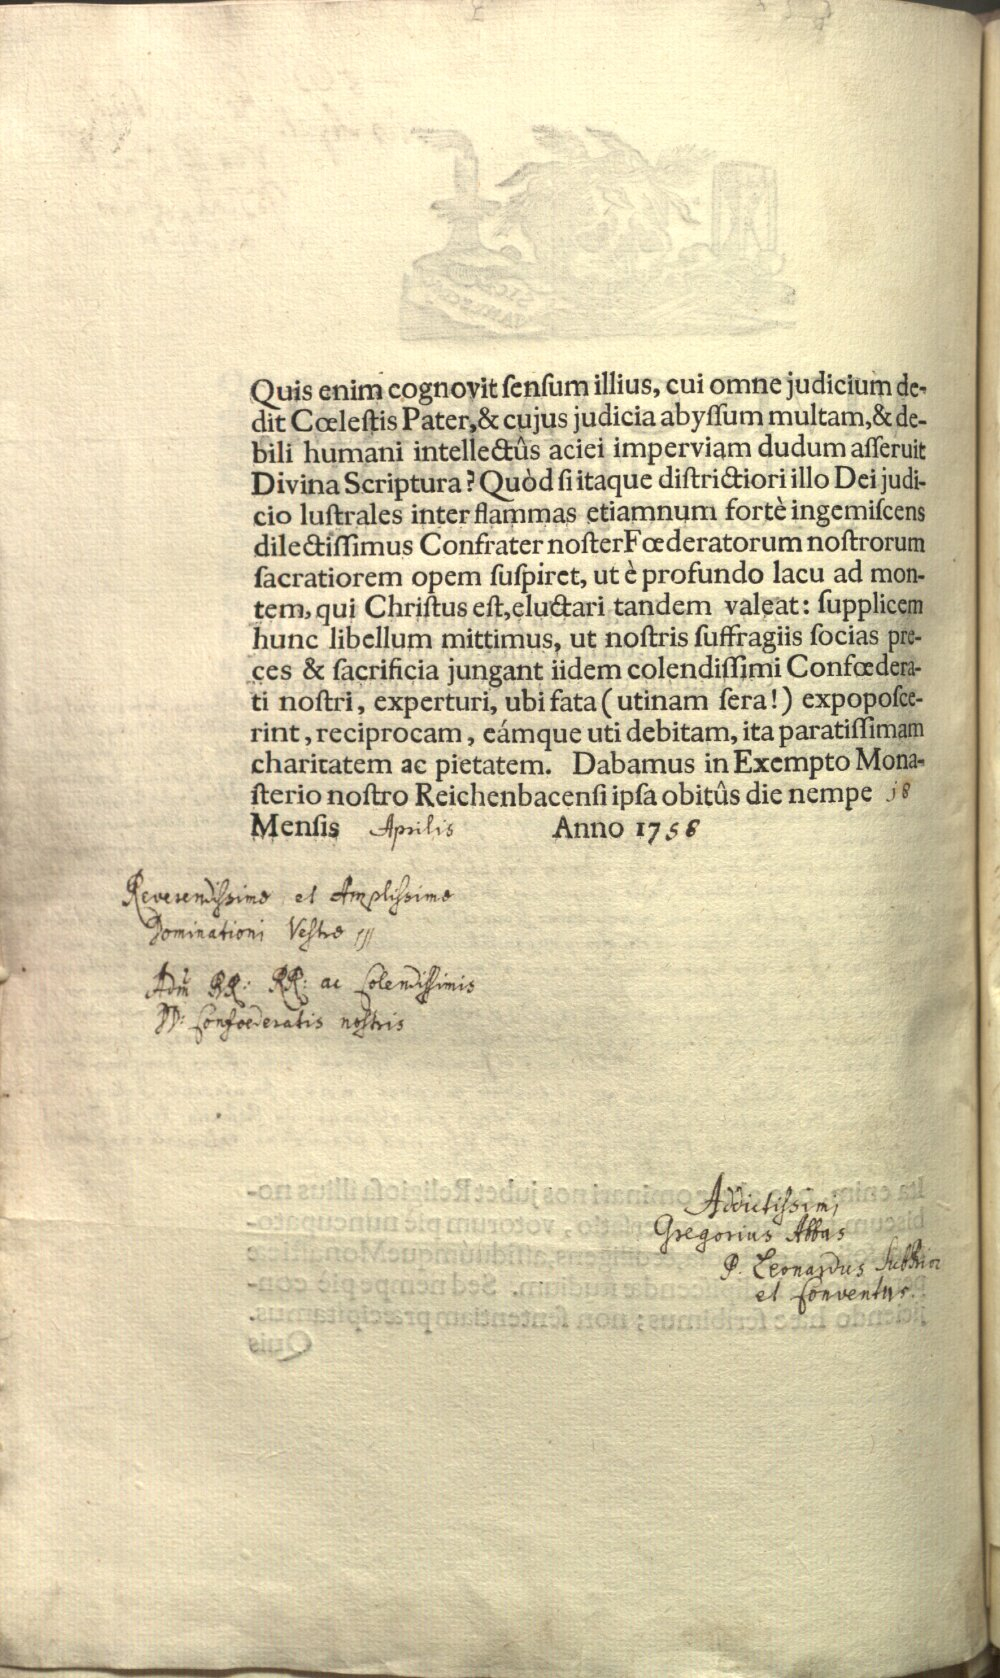 Quis enim cognovit ſenſum illius, cui omne judicium de-
dit Cœleſtis Pater, & cujus judicia abyſſum multam, & de-
bili humani intellectûs aciei imperviam dudum aſſeruit
Divina Scriptura? Quòd ſi itaque diſtrictiori illo Dei judi-
cio luſtrales inter flammas etiamnum fortè ingemiſcens
dilectiſſimus Confrater noſter Fœderatorum noſtrorum
ſacratiorem opem ſuſpiret, ut è profundo lacu ad mon-
tem, qui Chriſtus eſt, eluctari tandem valeat: ſupplicem
hunc libellum mittimus, ut noſtris ſuffragiis ſocias pre-
ces & ſacrificia jungant iidem colendiſſimi Confœdera-
ti noſtri, experturi, ubi fata (utinam ſera!) expopoſce-
rint, reciprocam, eámque uti debitam, ita paratiſſimam
charitatem ac pietatem. Dabamus in Exempto Mona-
ſterio noſtro Reichenbacenſi ipſa obitûs die nempe 18
Menſis Aprilis Anno 1758
Reverendissimæ et Amplissimæ
Dominationi Vestræ
Adm RR: RR: ac Colendissimis
DD: Confoederatis nostris
Addictissimi
Gregorius Abbas
P. Leonardus SubPrior
et Conventus.